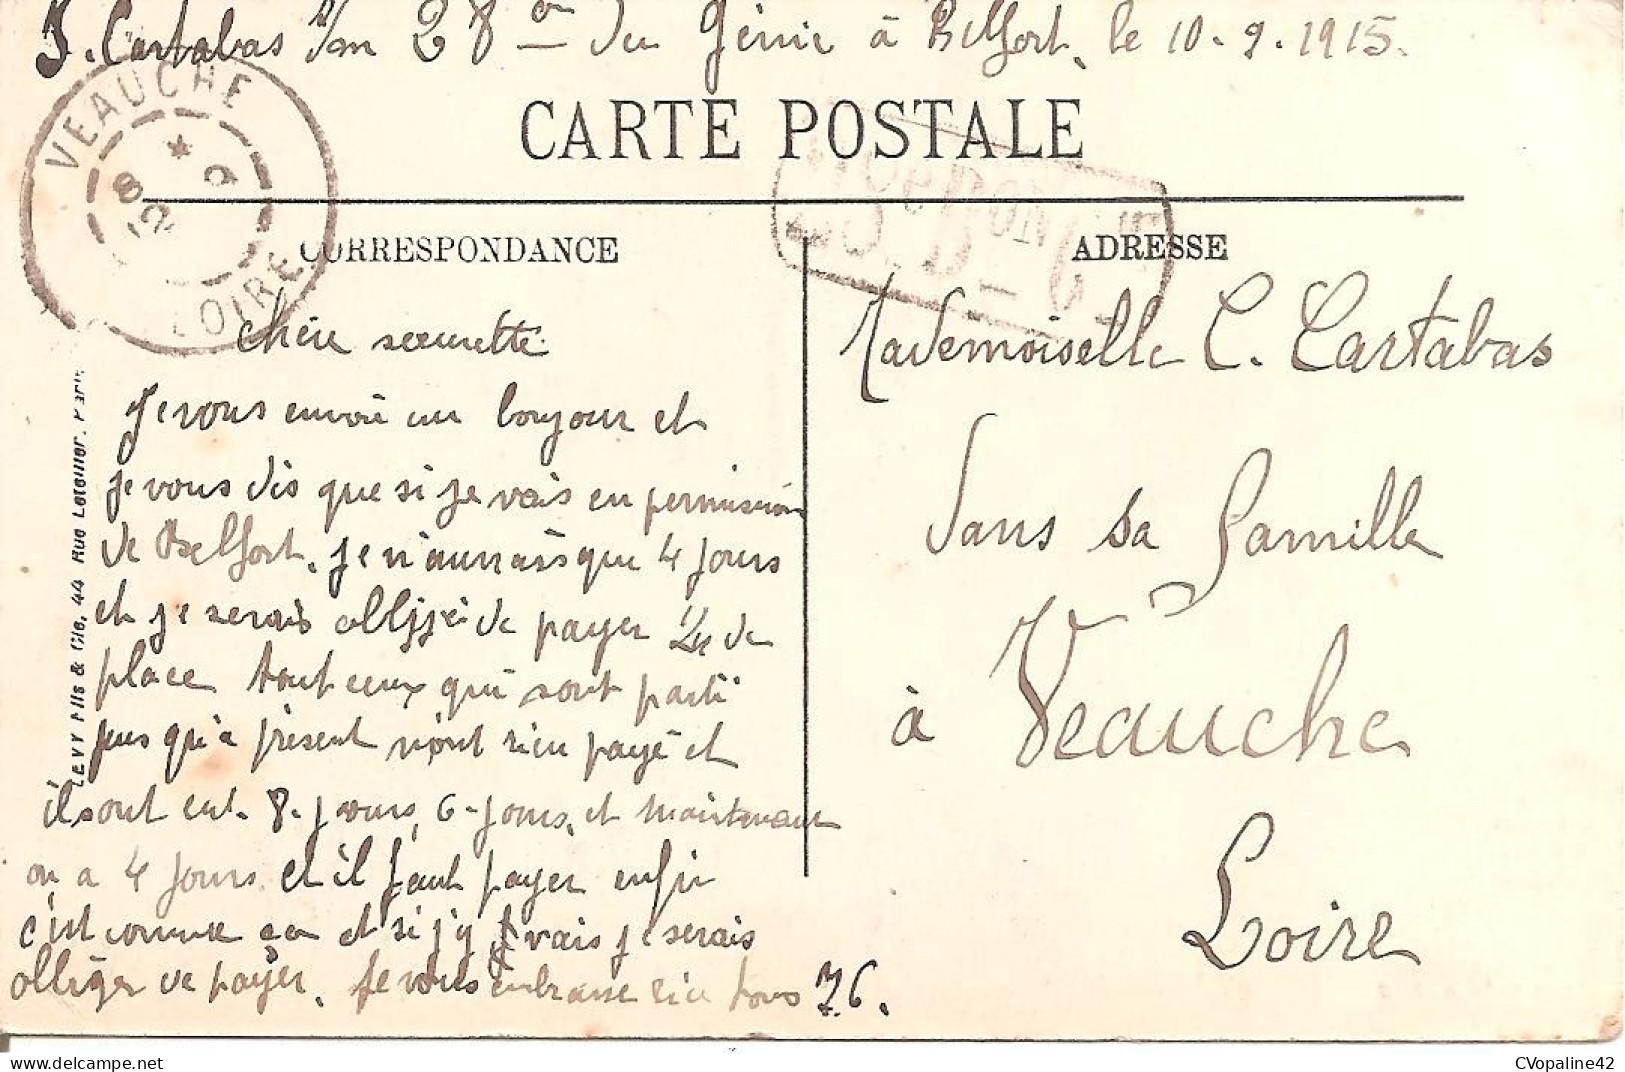 J. Cartabas 28 du Génie à Belfort, le 10-9-1915.
CARTE POSTALE
VEAUCHE
LOIRE
8
12 9
CORRESPONDANCE
ADRESSE
chère seourette
Je vous envoie un bonjour et
je vous dis que si je vais en permission
de Belfort, je n'aurrais que 4 jours
et je serais obligé de payer 1/4 de
place tout ceux qui sont parti
jusqu'à présent n'ont rien payé et
ils ont eut. 8. jours, 6-jours, et maintenant
on a 4 jours et il faut payer enfin
c'est comme ça et si j'y vais je serais
obliger de payer. Je vous embrasse tous J.C.
Mademoiselle C. Cartabas
dans sa famille
à Veauche
Loire
LEVY Fils & Cie, 44 Rue Letellier, Paris
CVopaline42